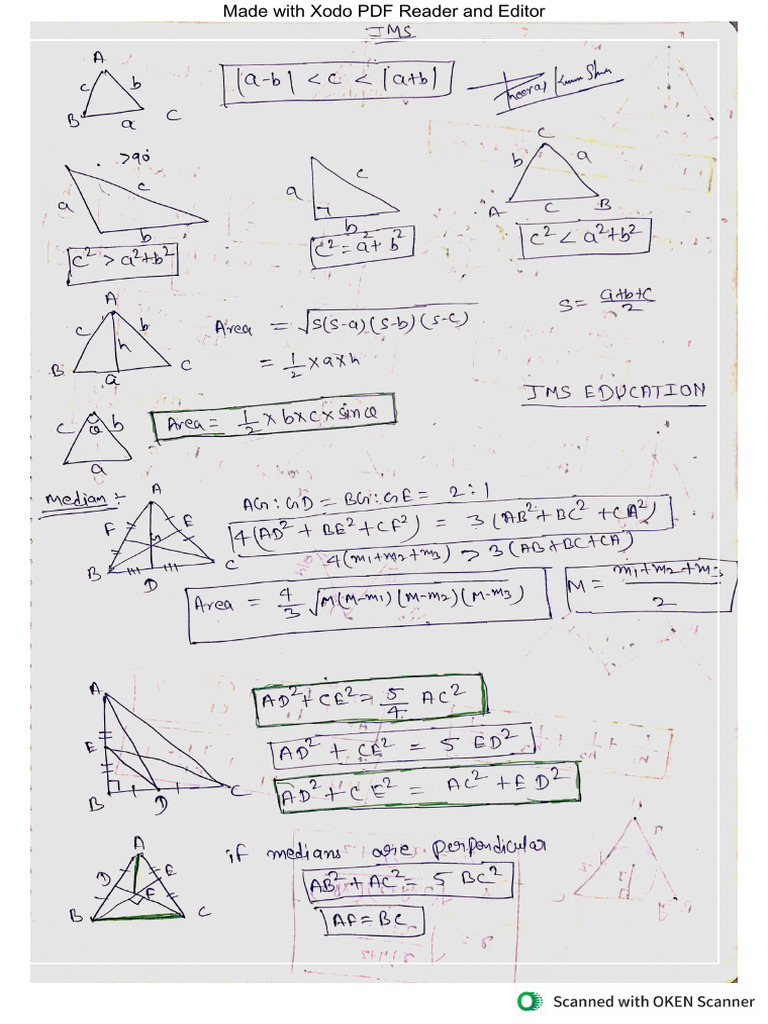 Made with Xodo PDF Reader and Editor
JMS
A
c b
B a C
|a-b| < c < |a+b|
>90°
a c
b
c² > a²+b²
a c
b
c² = a²+b²
C
b a
A c B
c² < a²+b²
A
c b
h
B a C
Area = √s(s-a)(s-b)(s-c)
= 1/2 × a × h
s = a+b+c/2
JMS EDUCATION
c θ b
a
Area = 1/2 × b × c × sinθ
Median :-
A
F E
G
B D C
AG : GD = BG : GE = 2 : 1
4(AD² + BE² + CF²) = 3(AB² + BC² + CA²)
4(m1+m2+m3) > 3(AB+BC+CA)
Area = 4/3 √M(M-m1)(M-m2)(M-m3)
M = m1+m2+m3/2
A
E
B D C
AD² + CE² = 5/4 AC²
AD² + CE² = 5 ED²
AD² + CE² = AC² + ED²
if medians are perpendicular
A
D E
F
B C
AB² + AC² = 5 BC²
AF = BC
Scanned with OKEN Scanner